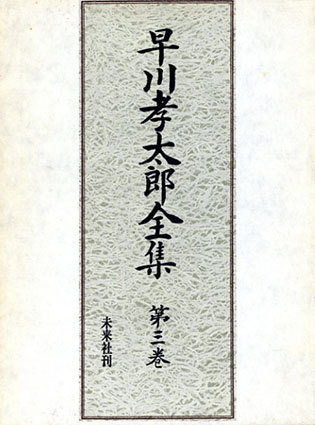 早川孝太郎全集
第三巻
未来社刊